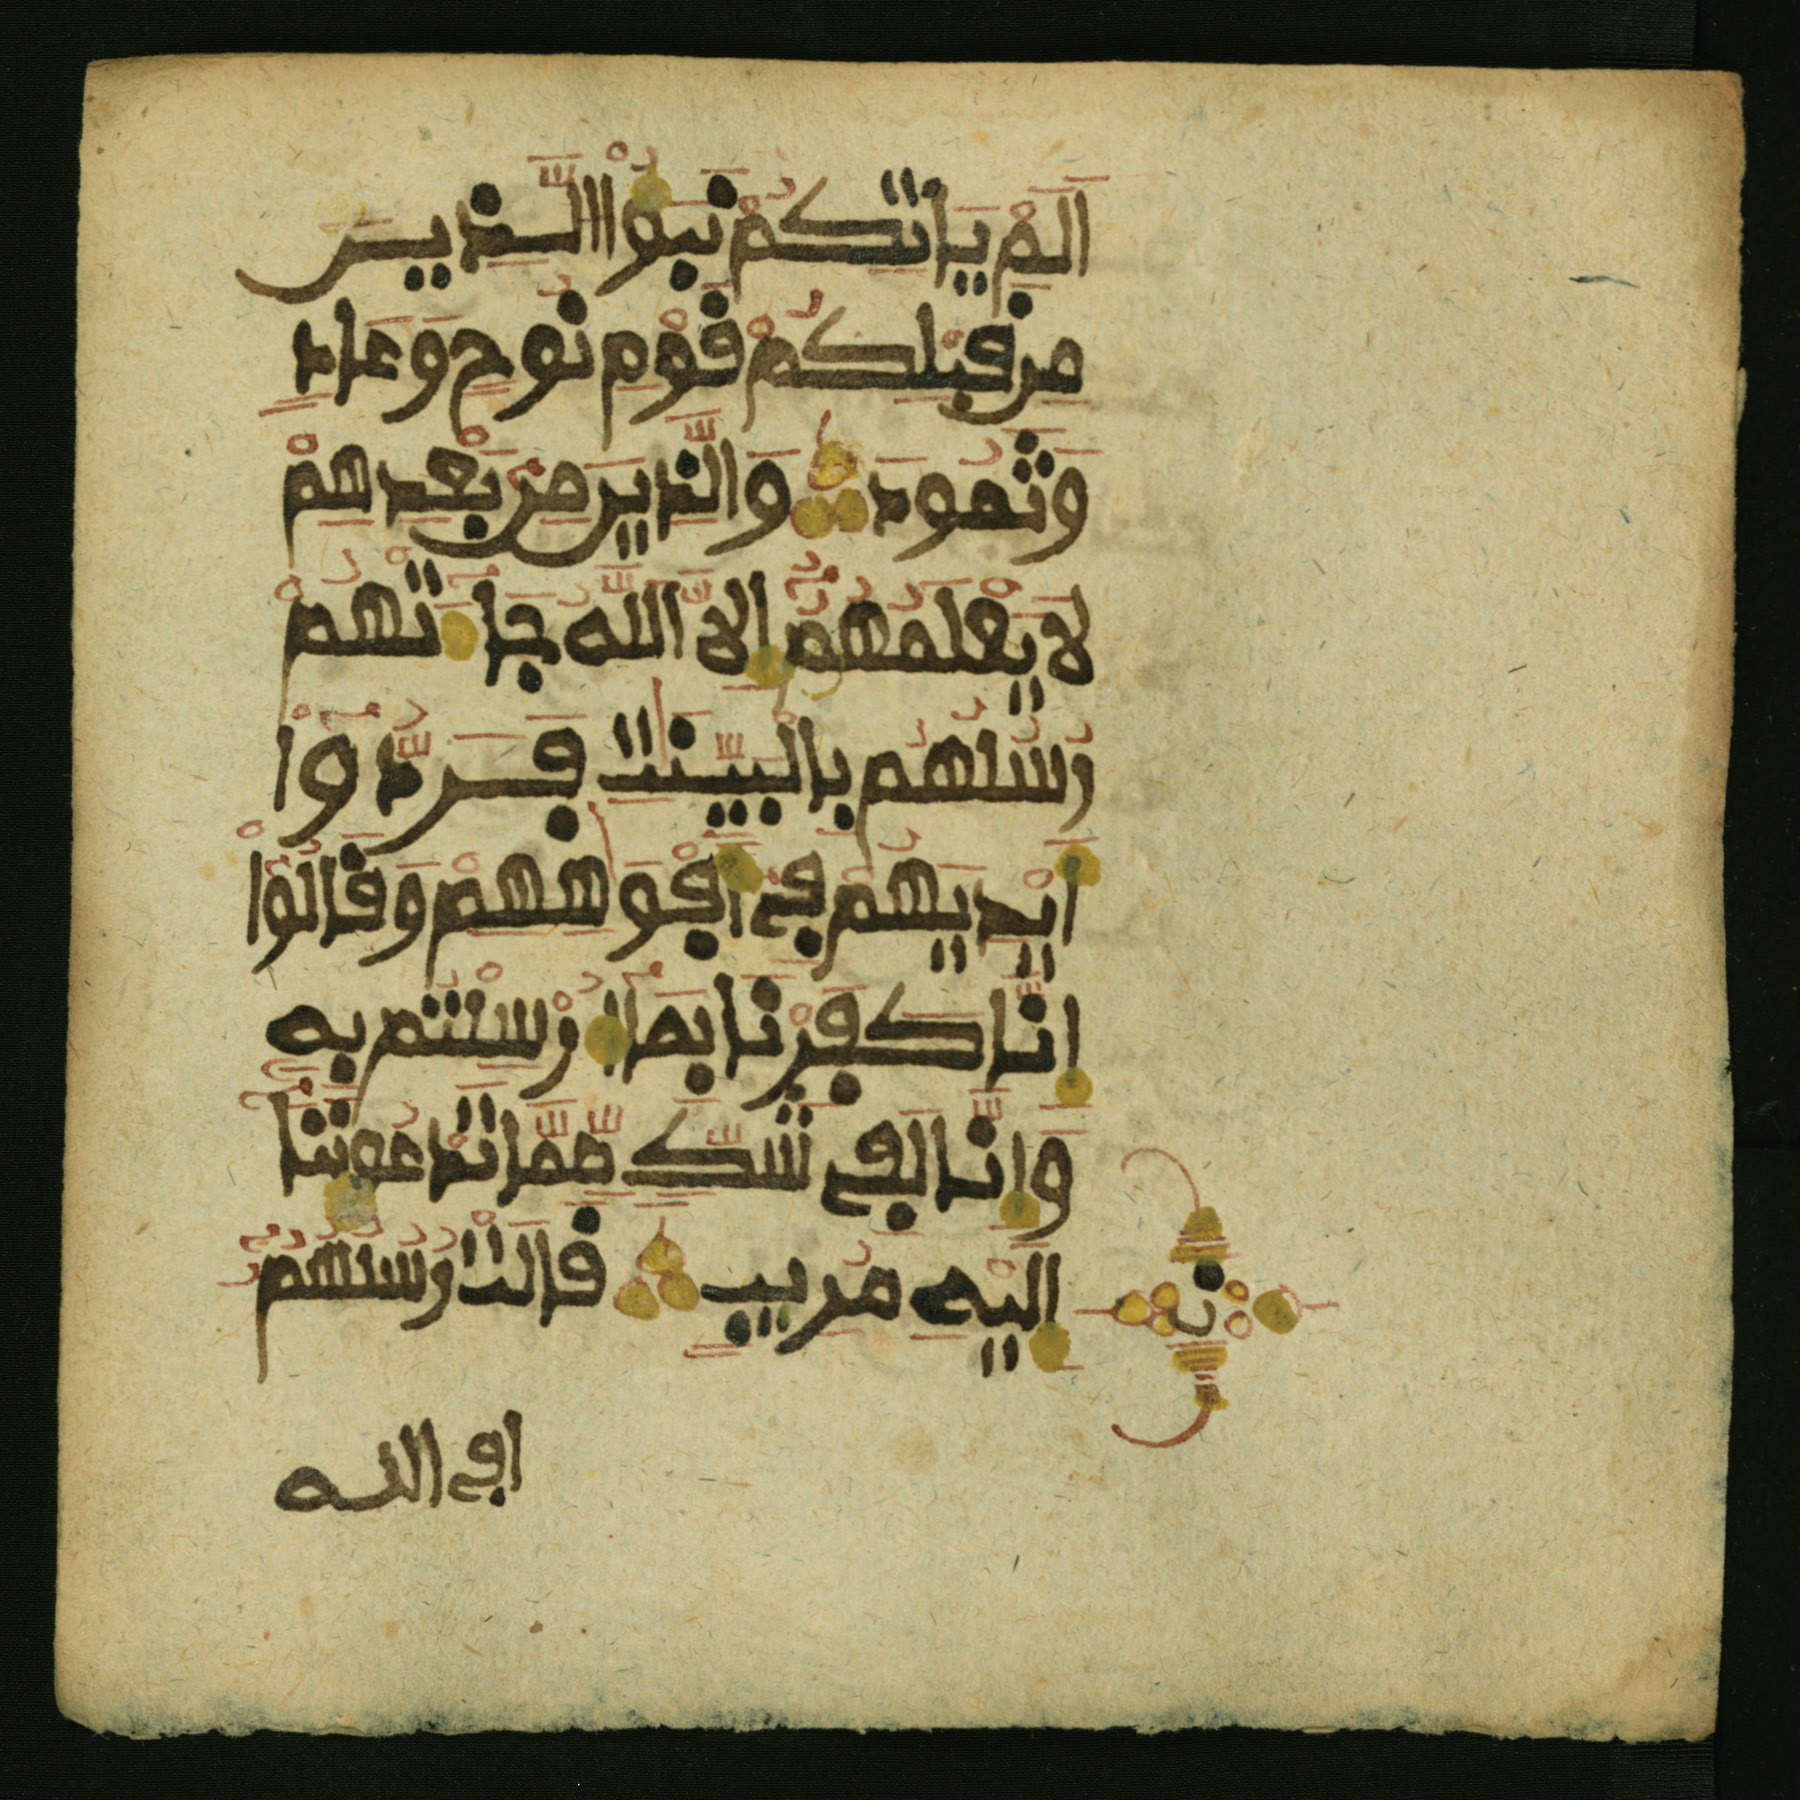 اَلَمْ يَاتِكُمْ نَبَؤُاْ اُالَّذِينَ
مِن قَبْلِكُمْ قَوْمِ نُوحٍ وَعَادٍ
وَثَمُودَ وَالَّذِينَ مِنۢ بَعْدِهِمْ
لَا يَعْلَمُهُمُۥٓ إِلَّا اَللَّهُ جَآءَتْهُمْ
رُسُلُهُم بِالْبَيِّنَٰتِ فَرَدُّوٓاْ
أَيْدِيَهُمْ فِےٓ أَفْوَٰهِهِمْ وَقَالُوٓاْ
إِنَّا كَفَرْنَا بِمَآ أُرْسِلْتُم بِهِۦ
وَإِنَّا لَفِے شَكٍّ مِّمَّا تَدْعُونَنَآ
إِلَيْهِ مُرِيبٍ قَالَتْ رُسُلُهُمُۥٓ
ن
افے الله